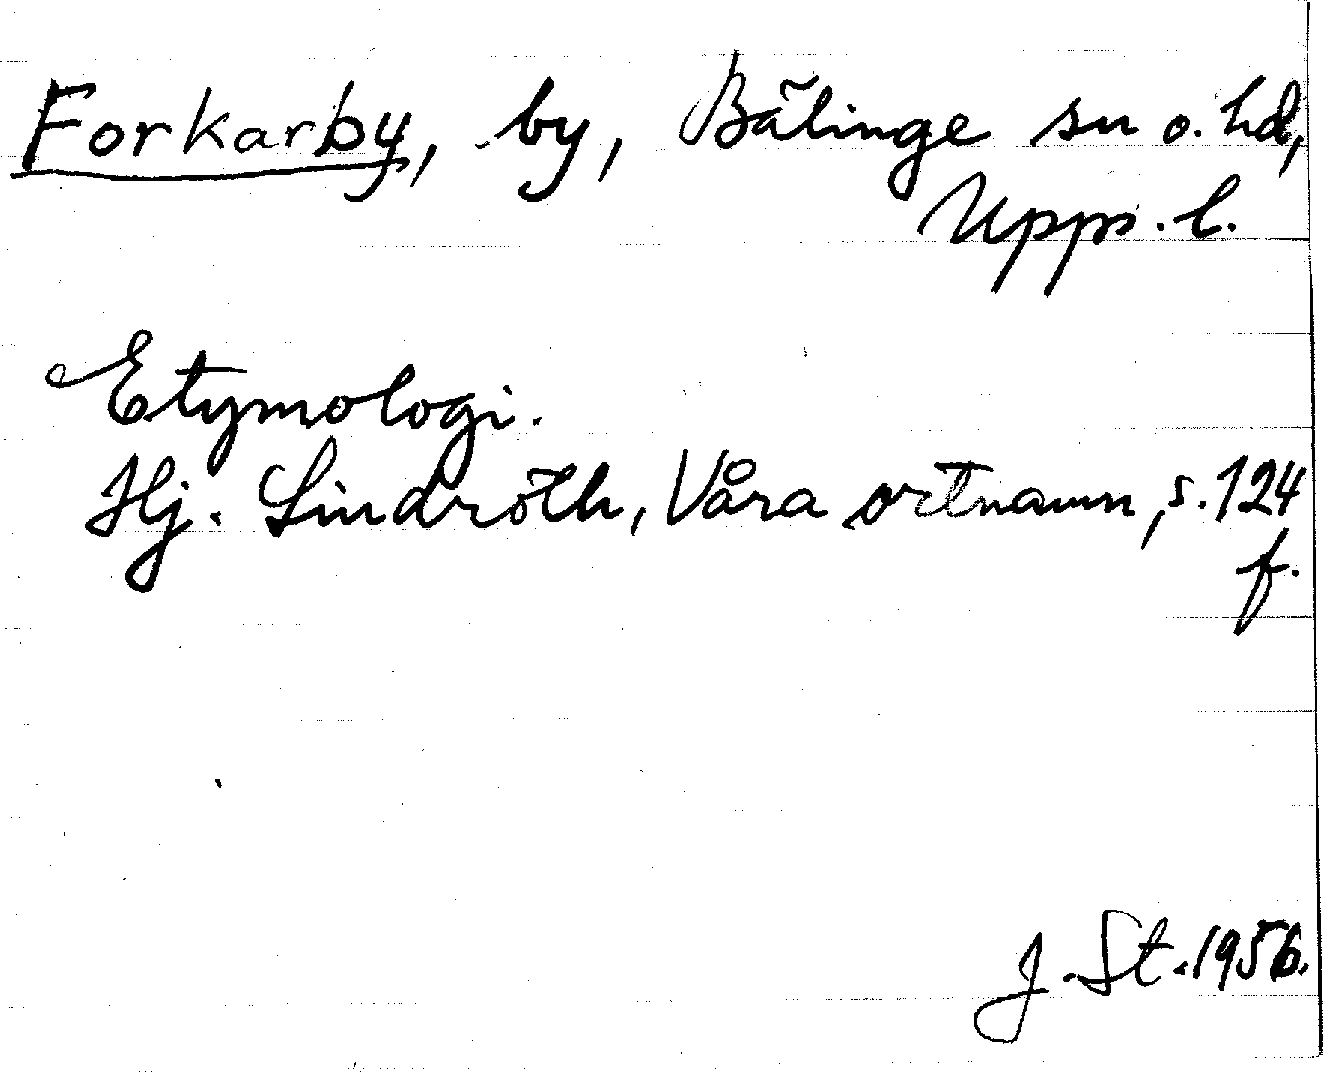 Forkarby, by, Bälinge sn o. hd,
Upps. l.
Etymologi.
Hj. Lindroth, Våra ortnamn, s. 124
f.
J. St. 1956.